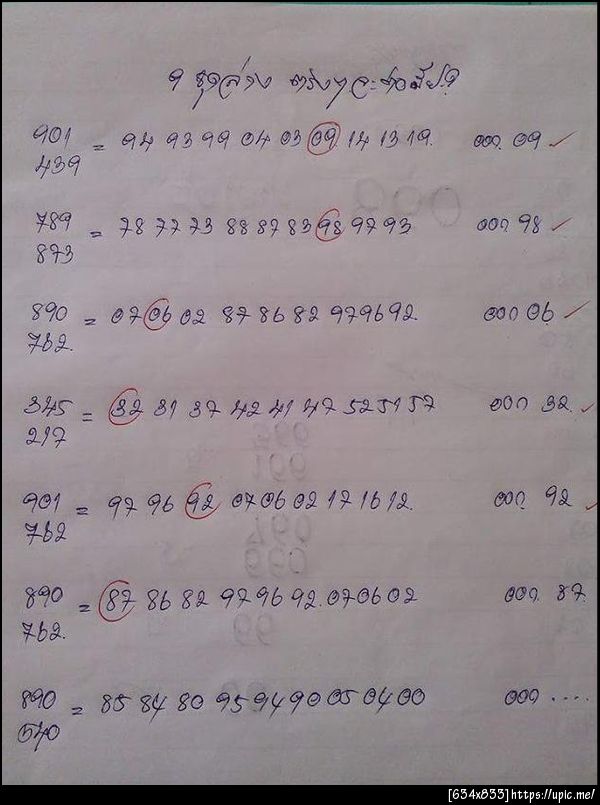 9 ชุดล่าง ตรงๆ
901
439 = 94 93 99 04 03 09 14 13 19. ออก. 09 ✓
789
873 = 78 77 73 88 87 83 98 97 93 ออก 98 ✓
890
762. = 07 06 02 87 86 82 97 96 92. ออก 06 ✓
345
217 = 32 31 37 42 41 47 52 51 57 ออก 32. ✓
901
762 = 97 96 92 07 06 02 17 16 12. ออก. 92 ✓
890
762. = 87 86 82 97 96 92. 07 06 02 ออก. 87.
890
540 = 85 84 80 95 94 90 05 04 00 ออก ....
[634x833]https://upic.me/